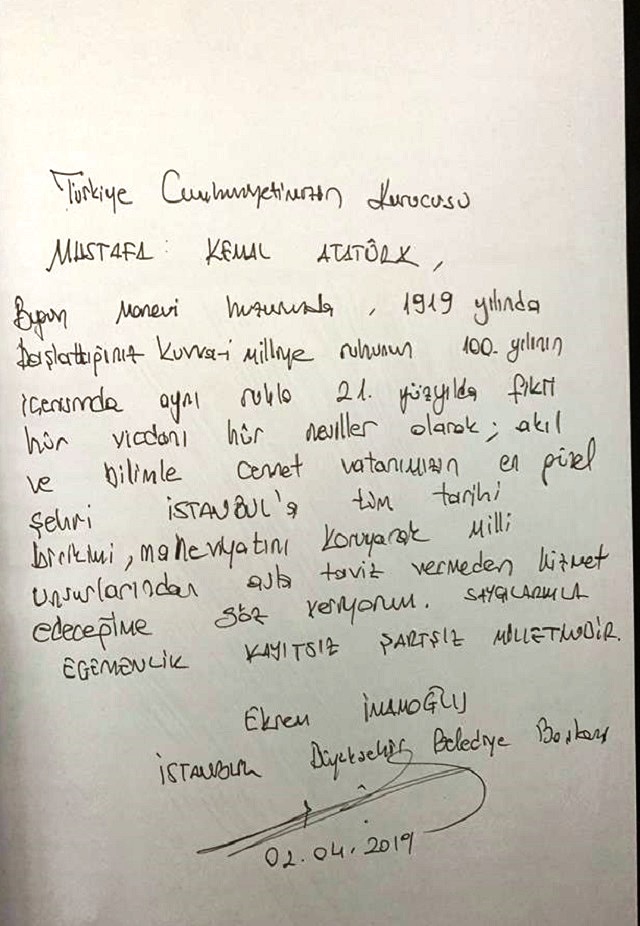 Türkiye Cumhuriyetimizin Kurucusu
MUSTAFA KEMAL ATATÜRK,
Bugün manevi huzurunuzda, 1919 yılında
Başlattığınız Kuvva-i Milliye ruhunun 100. yılının
içerisinde aynı ruhla 21. yüzyılda fikri
hür vicdanı hür nesiller olarak; akıl
ve bilimle cennet vatanımızın en güzel
şehri İSTANBUL'a tüm tarihi
birikimi, maneviyatını koruyarak Milli
unsurlarından asla taviz vermeden hizmet
edeceğime söz veriyorum. SAYGILARIMLA
EGEMENLİK KAYITSIZ ŞARTSIZ MİLLETİNDİR.
Ekrem İMAMOĞLU
İSTANBUL Büyükşehir Belediye Başkanı
02.04.2019